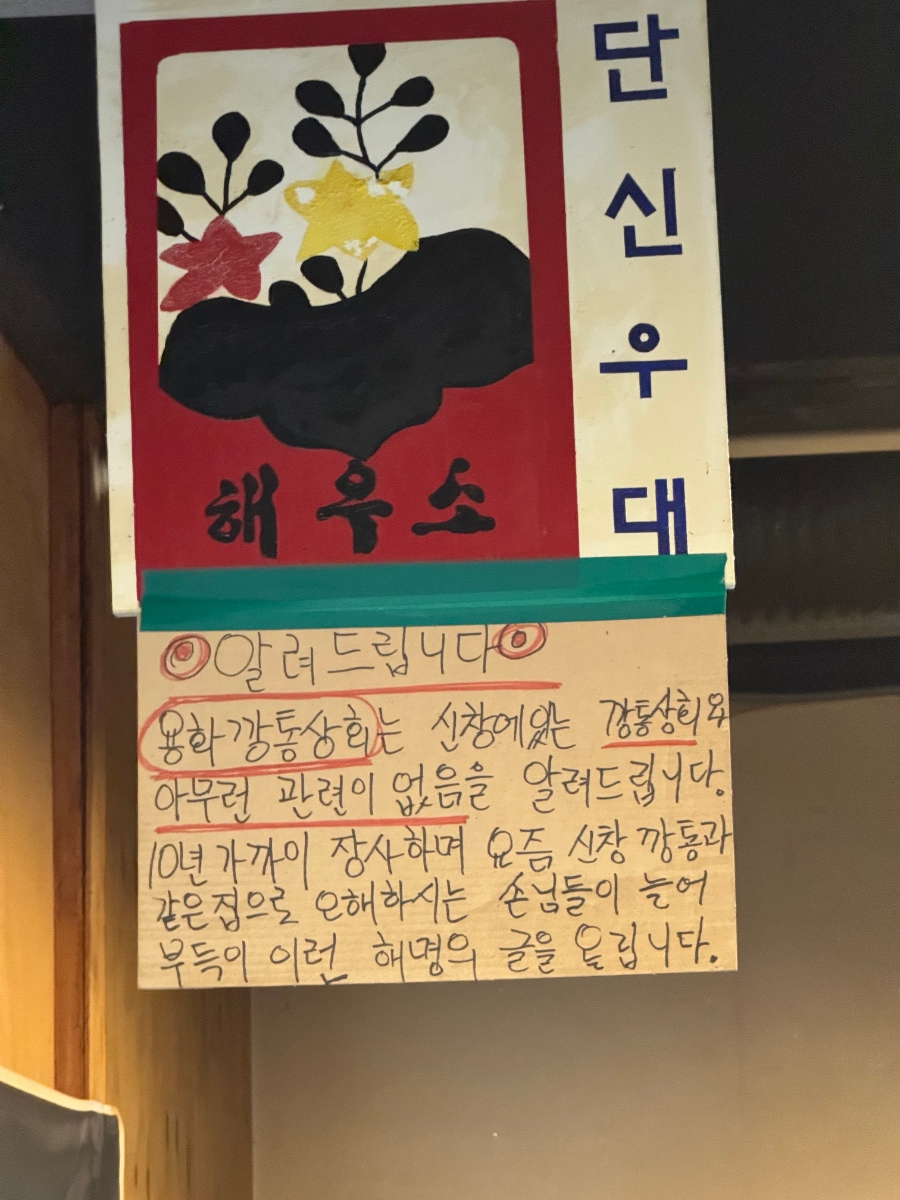 단신우대
해우소
알려드립니다
용화깡통상회는 신창에있는 깡통상회와
아무런 관련이 없음을 알려드립니다.
10년가까이 장사하며 요즘 신창 깡통과
같은집으로 오해하시는 손님들이 늘어
부득이 이런 해명의 글을 올립니다.